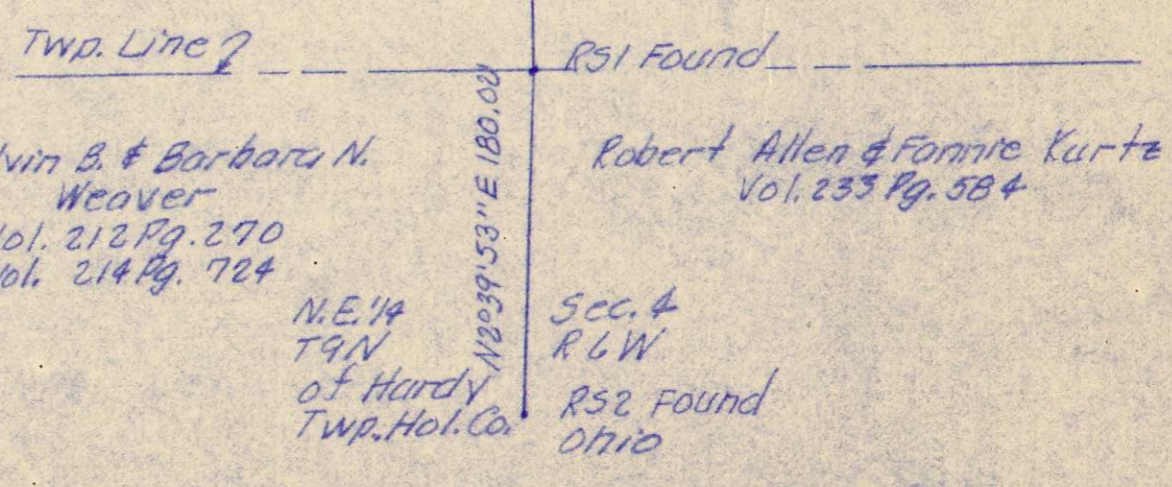 Twp. Line
RS1 Found
N2°39'53"E 180.02'
vin B. & Barbara N.
Weaver
Vol. 212 Pg. 270
Vol. 214 Pg. 724
Robert Allen & Fannie Kurtz
Vol. 233 Pg. 584
N.E. 1/4
T9N
of Hardy
Twp. Hol. Co.
Sec. 4
R6W
RS2 Found
Ohio